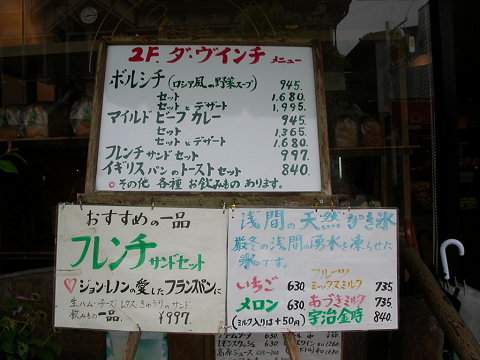 2F. ダ・ヴィンチ メニュー
ボルシチ (ロシア風の野菜スープ) 945.
セット 1,680.
セットとデザート 1,995.
マイルドビーフカレー 945.
セット 1,365.
セットとデザート 1,680.
フレンチサンドセット 997.
イギリスパンのトーストセット 840.
◎その他 各種 お飲みもの あります。
おすすめの一品
フレンチサンドセット
♡ジョンレノンの愛したフランスパンに
生ハム・チーズ・レタス・きゅうりのサンド
飲みもの一品 ¥997.
浅間の天然かき氷
厳冬の浅間の湧水を凍らせた
氷です。
いちご 630
フルーツ
ミックスミルク 735
メロン 630
あづきミルク 735.
(ミルク入りは+50円)
宇治金時 840.